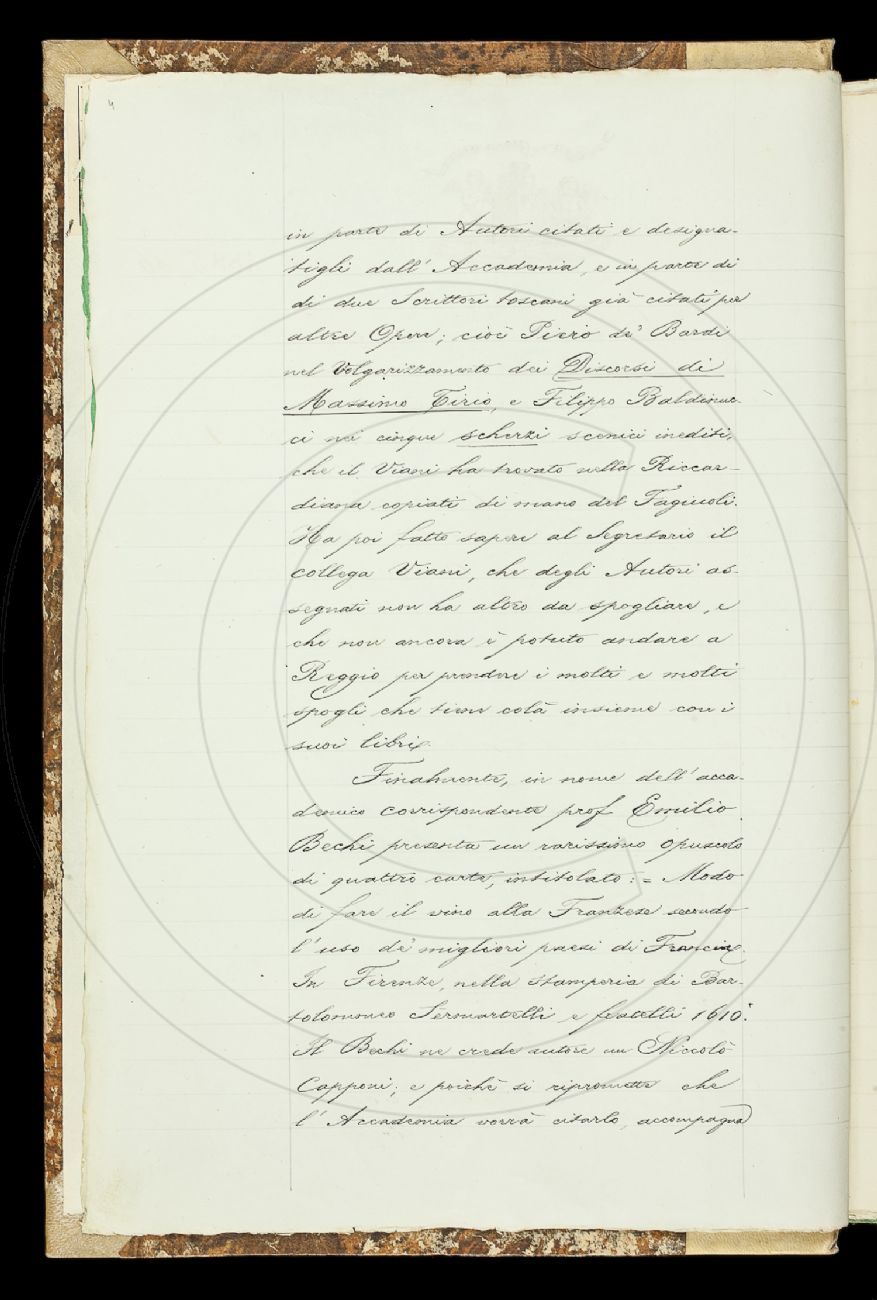 4
in parte di Autori citati e designa-
tigli dall'Accademia, e in parte di
di due Scrittori toscani già citati per
altre Opere; cioè Piero de' Bardi
nel Volgarizzamento dei Discorsi di
Massimo Tirio, e Filippo Baldinuc-
ci nei cinque scherzi scenici inediti,
che il Viani ha trovato nella Riccar-
diana copiati di mano del Fagiuoli.
Ha poi fatto sapere al Segretario il
collega Viani, che degli Autori as-
segnati non ha altro da spogliare, e
che non ancora è potuto andare a
Reggio per prendere i molti e molti
spogli che tiene colà insieme con i
suoi libri.
Finalmente, in nome dell'acca-
demico corrispondente prof Emilio
Bechi presenta un rarissimo opuscolo
di quattro carte, intitolato: = Modo
di fare il vino alla Franzese secondo
l'uso de' migliori paesi di Francia.
In Firenze, nella stamperia di Bar-
tolommeo Sermartelli e fratelli 1610".
Il Bechi ne crede autore un Niccolò
Capponi; e poichè si ripromette che
l'Accademia vorrà citarlo, accompagna